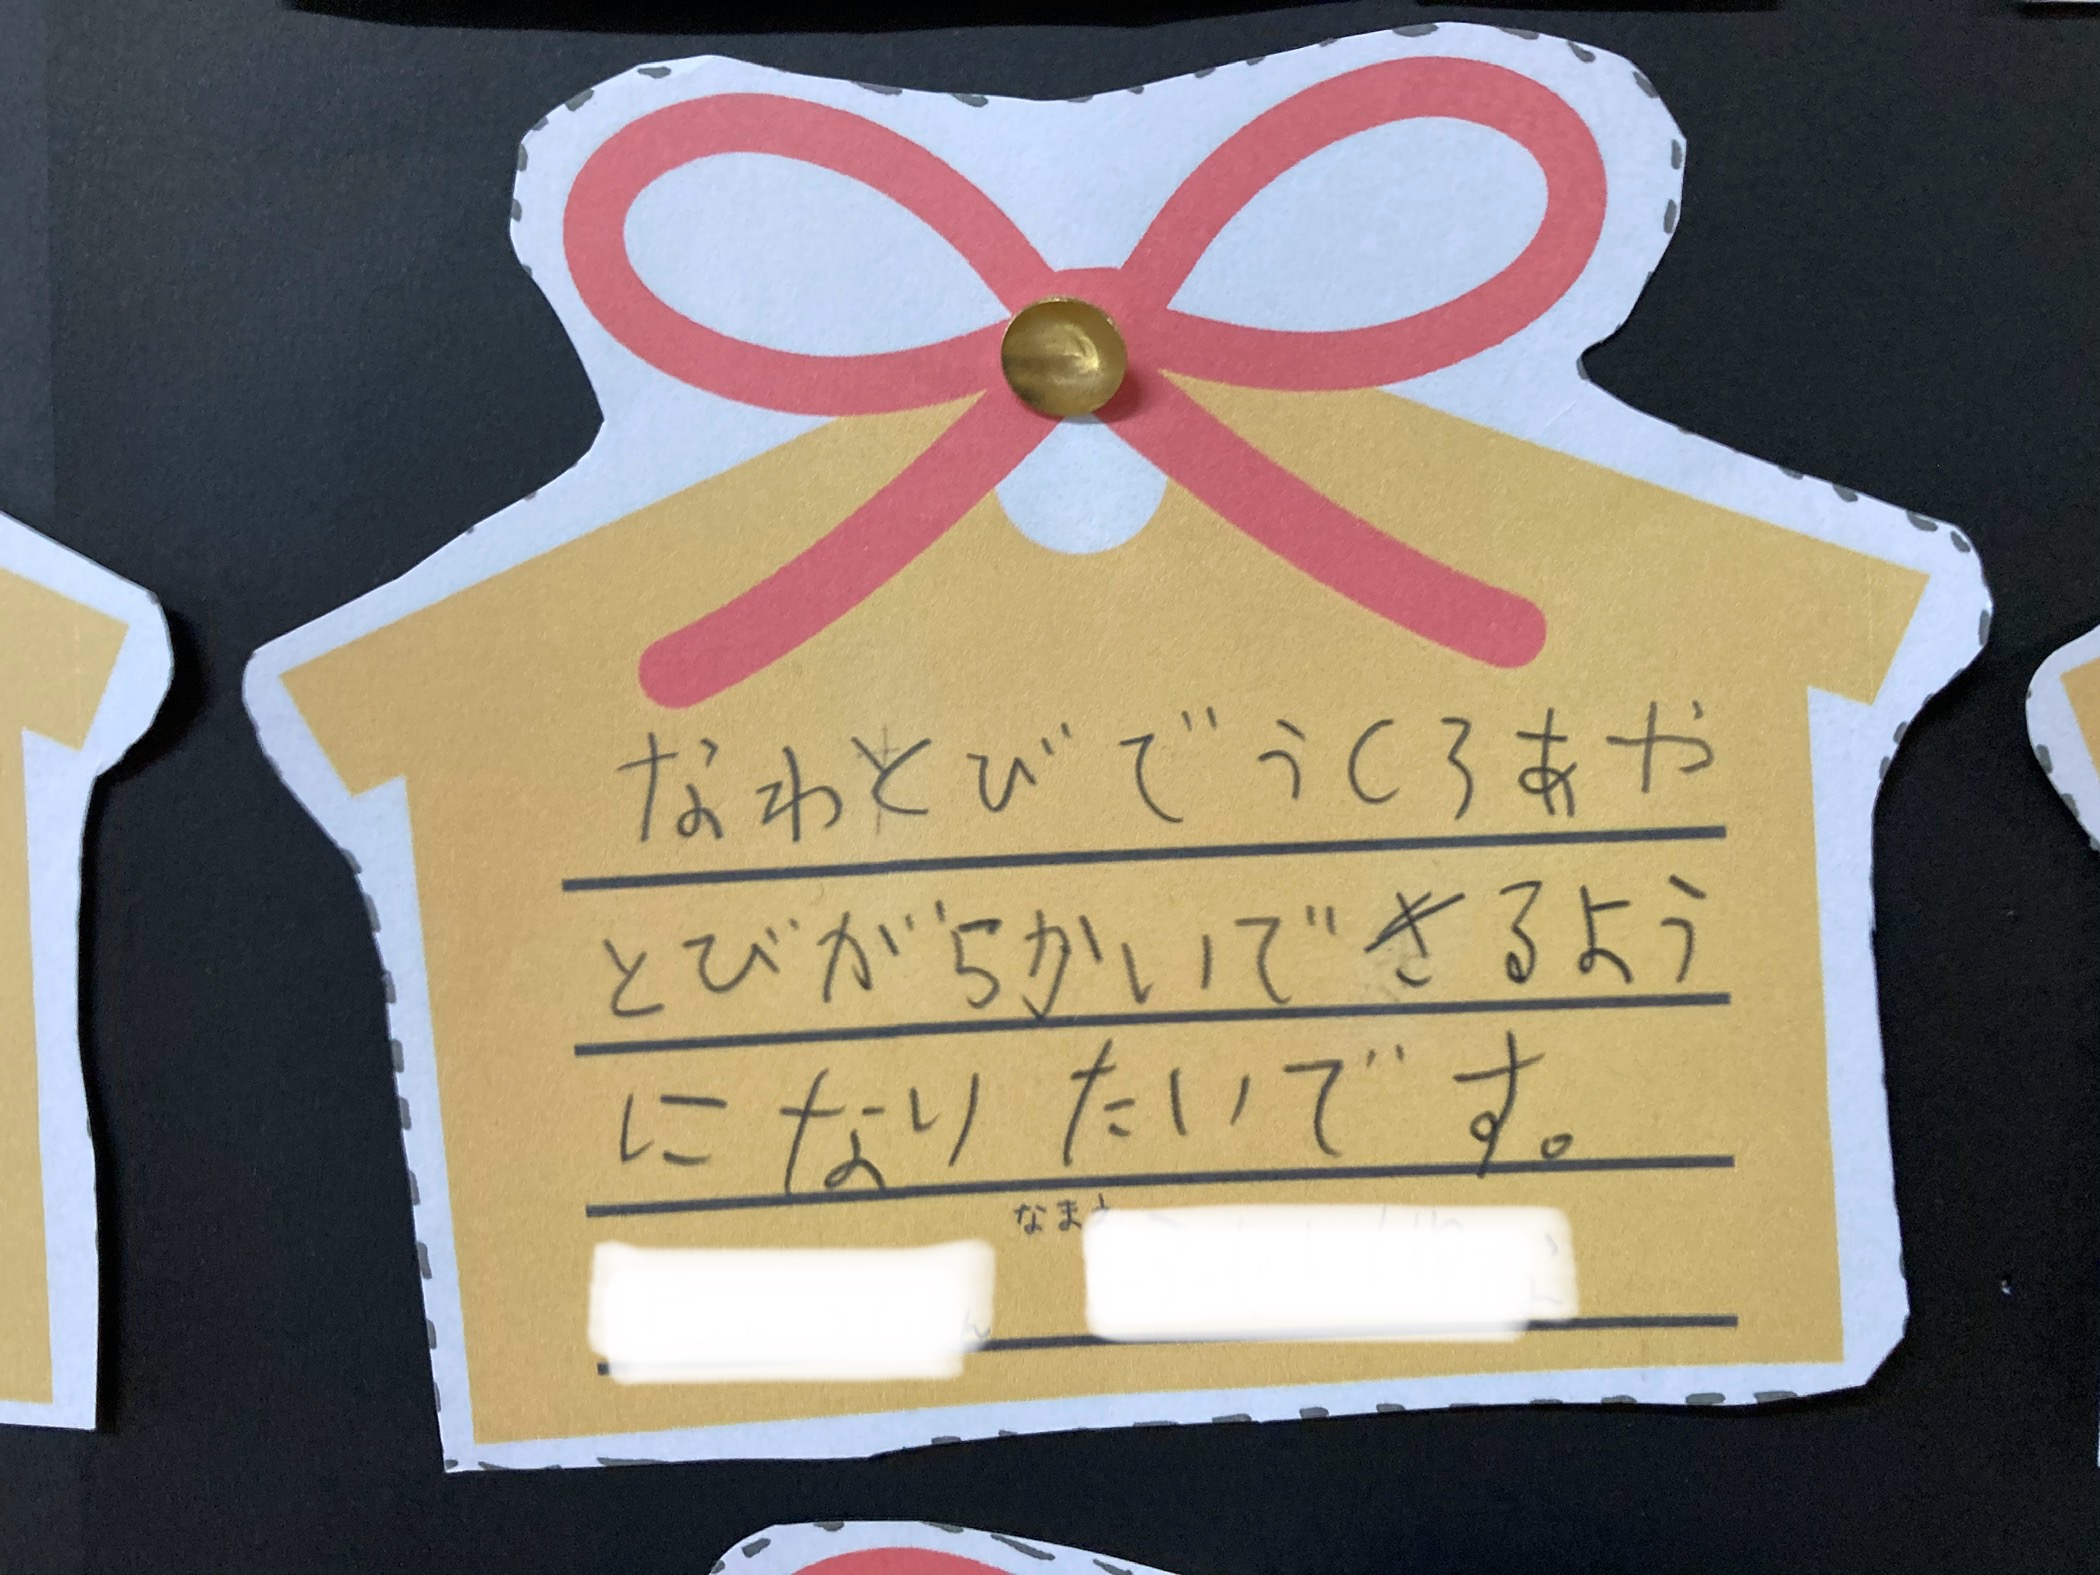 なわとびでうくろあや
とびがらかいできるよう
になりたいです。
なまえ